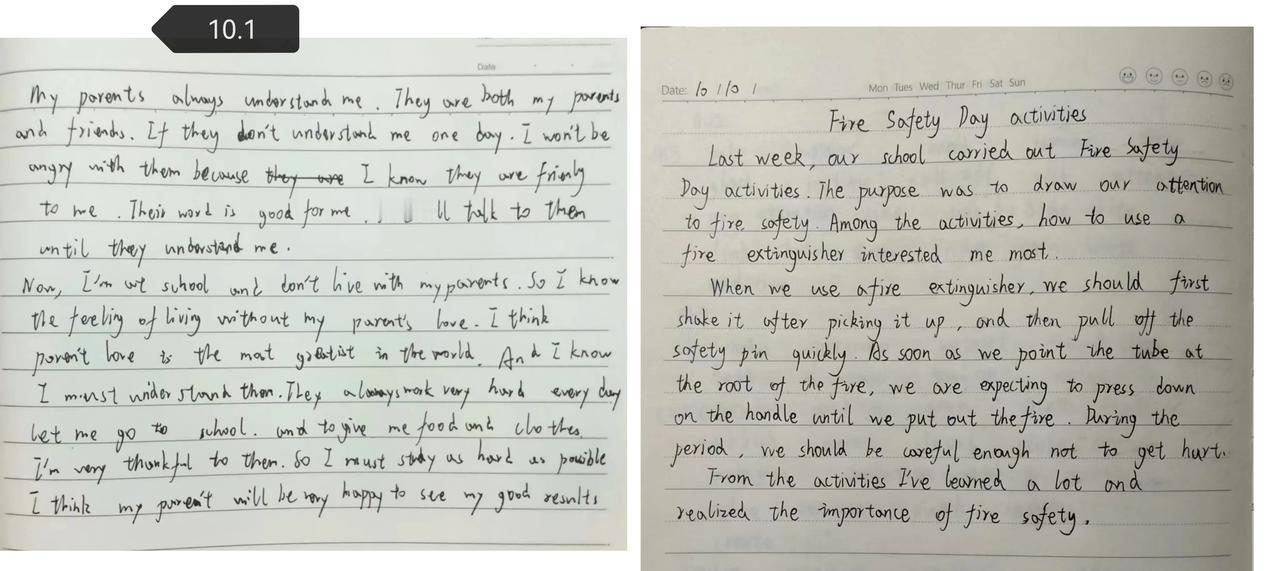 10.1
Date
My parents always understand me. They are both my parents
and friends. If they don't understand me one day. I won't be
angry with them because they are I know they are frienly
to me. Their word is good for me. ll talk to them
until they understand me.
Now, I'm at school and don't live with my parents. So I know
the feeling of living without my parent's love. I think
parent love is the most greatist in the world. And I know
I must understand them. They always work very hard every day
let me go to school. and to give me food and clothes.
I'm very thankful to them. So I must study as hard as posible
I think my parent will be very happy to see my good results
Date: 10 / 10 / Mon Tues Wed Thur Fri Sat Sun
Fire Safety Day activities
Last week, our school carried out Fire Safety
Day activities. The purpose was to draw our attention
to fire safety. Among the activities, how to use a
fire extinguisher interested me most.
When we use a fire extinguisher, we should first
shake it after picking it up, and then pull off the
safety pin quickly. As soon as we point the tube at
the root of the fire, we are expecting to press down
on the handle until we put out the fire. During the
period, we should be careful enough not to get hurt.
From the activities I've learned a lot and
realized the importance of fire safety.